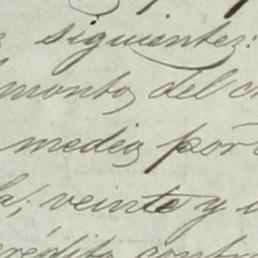 siguientes:
monto, del
media por
la; veinte y
crédito contra